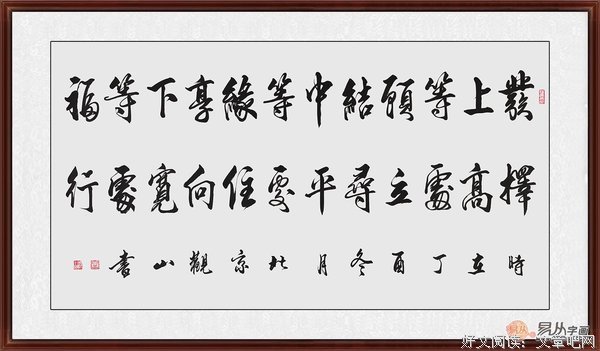 發上等願結中等緣享下等福
擇高處立尋平處住向寬處行
時在丁酉冬月北京觀山書
易从字画
好文阅读：文章吧网